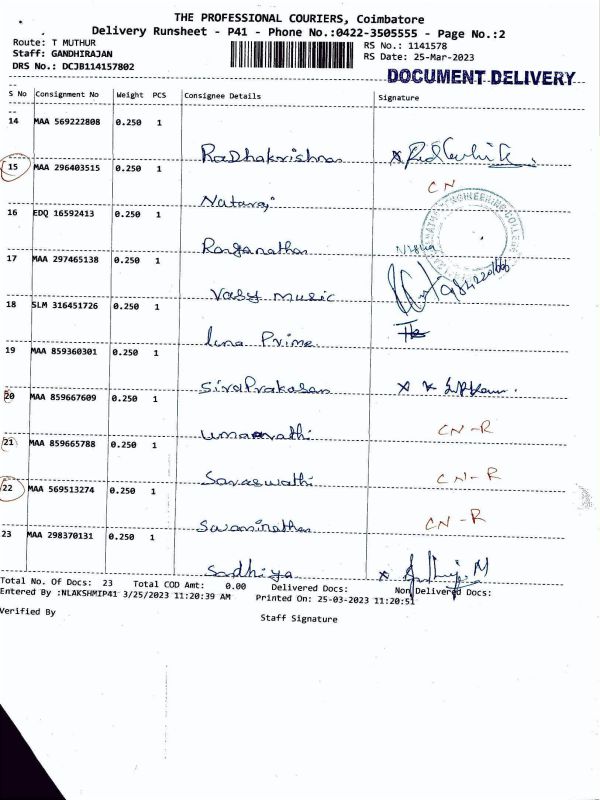 THE PROFESSIONAL COURIERS, Coimbatore
Delivery Runsheet - P41 - Phone No.:0422-3505555 - Page No.:2
Route: T MUTHUR
RS No.: 1141578
Staff: GANDHIRAJAN
RS Date: 25-Mar-2023
DRS No.: DCJB114157802
DOCUMENT DELIVERY
S No Consignment No Weight PCS Consignee Details Signature
14 MAA 569222808 0.250 1
Radhakrishnan
15 MAA 296403515 0.250 1
Nataraj CN
16 EDQ 16592413 0.250 1
Ranganathan
17 MAA 297465138 0.250 1
Vasy music
18 SLM 316451726 0.250 1
Prime
19 MAA 859360301 0.250 1
SivaPrakasan
20 MAA 859667609 0.250 1
Umamathi CN-R
21 MAA 859665788 0.250 1
Saraswathi CN-R
22 MAA 569513274 0.250 1
Swaminathan CN-R
23 MAA 298370131 0.250 1
Sadhiya
Total No. Of Docs: 23 Total COD Amt: 0.00 Delivered Docs: Non Delivered Docs:
Entered By :NLAKSHMIP41 3/25/2023 11:20:39 AM Printed On: 25-03-2023 11:20:51
Verified By
Staff Signature